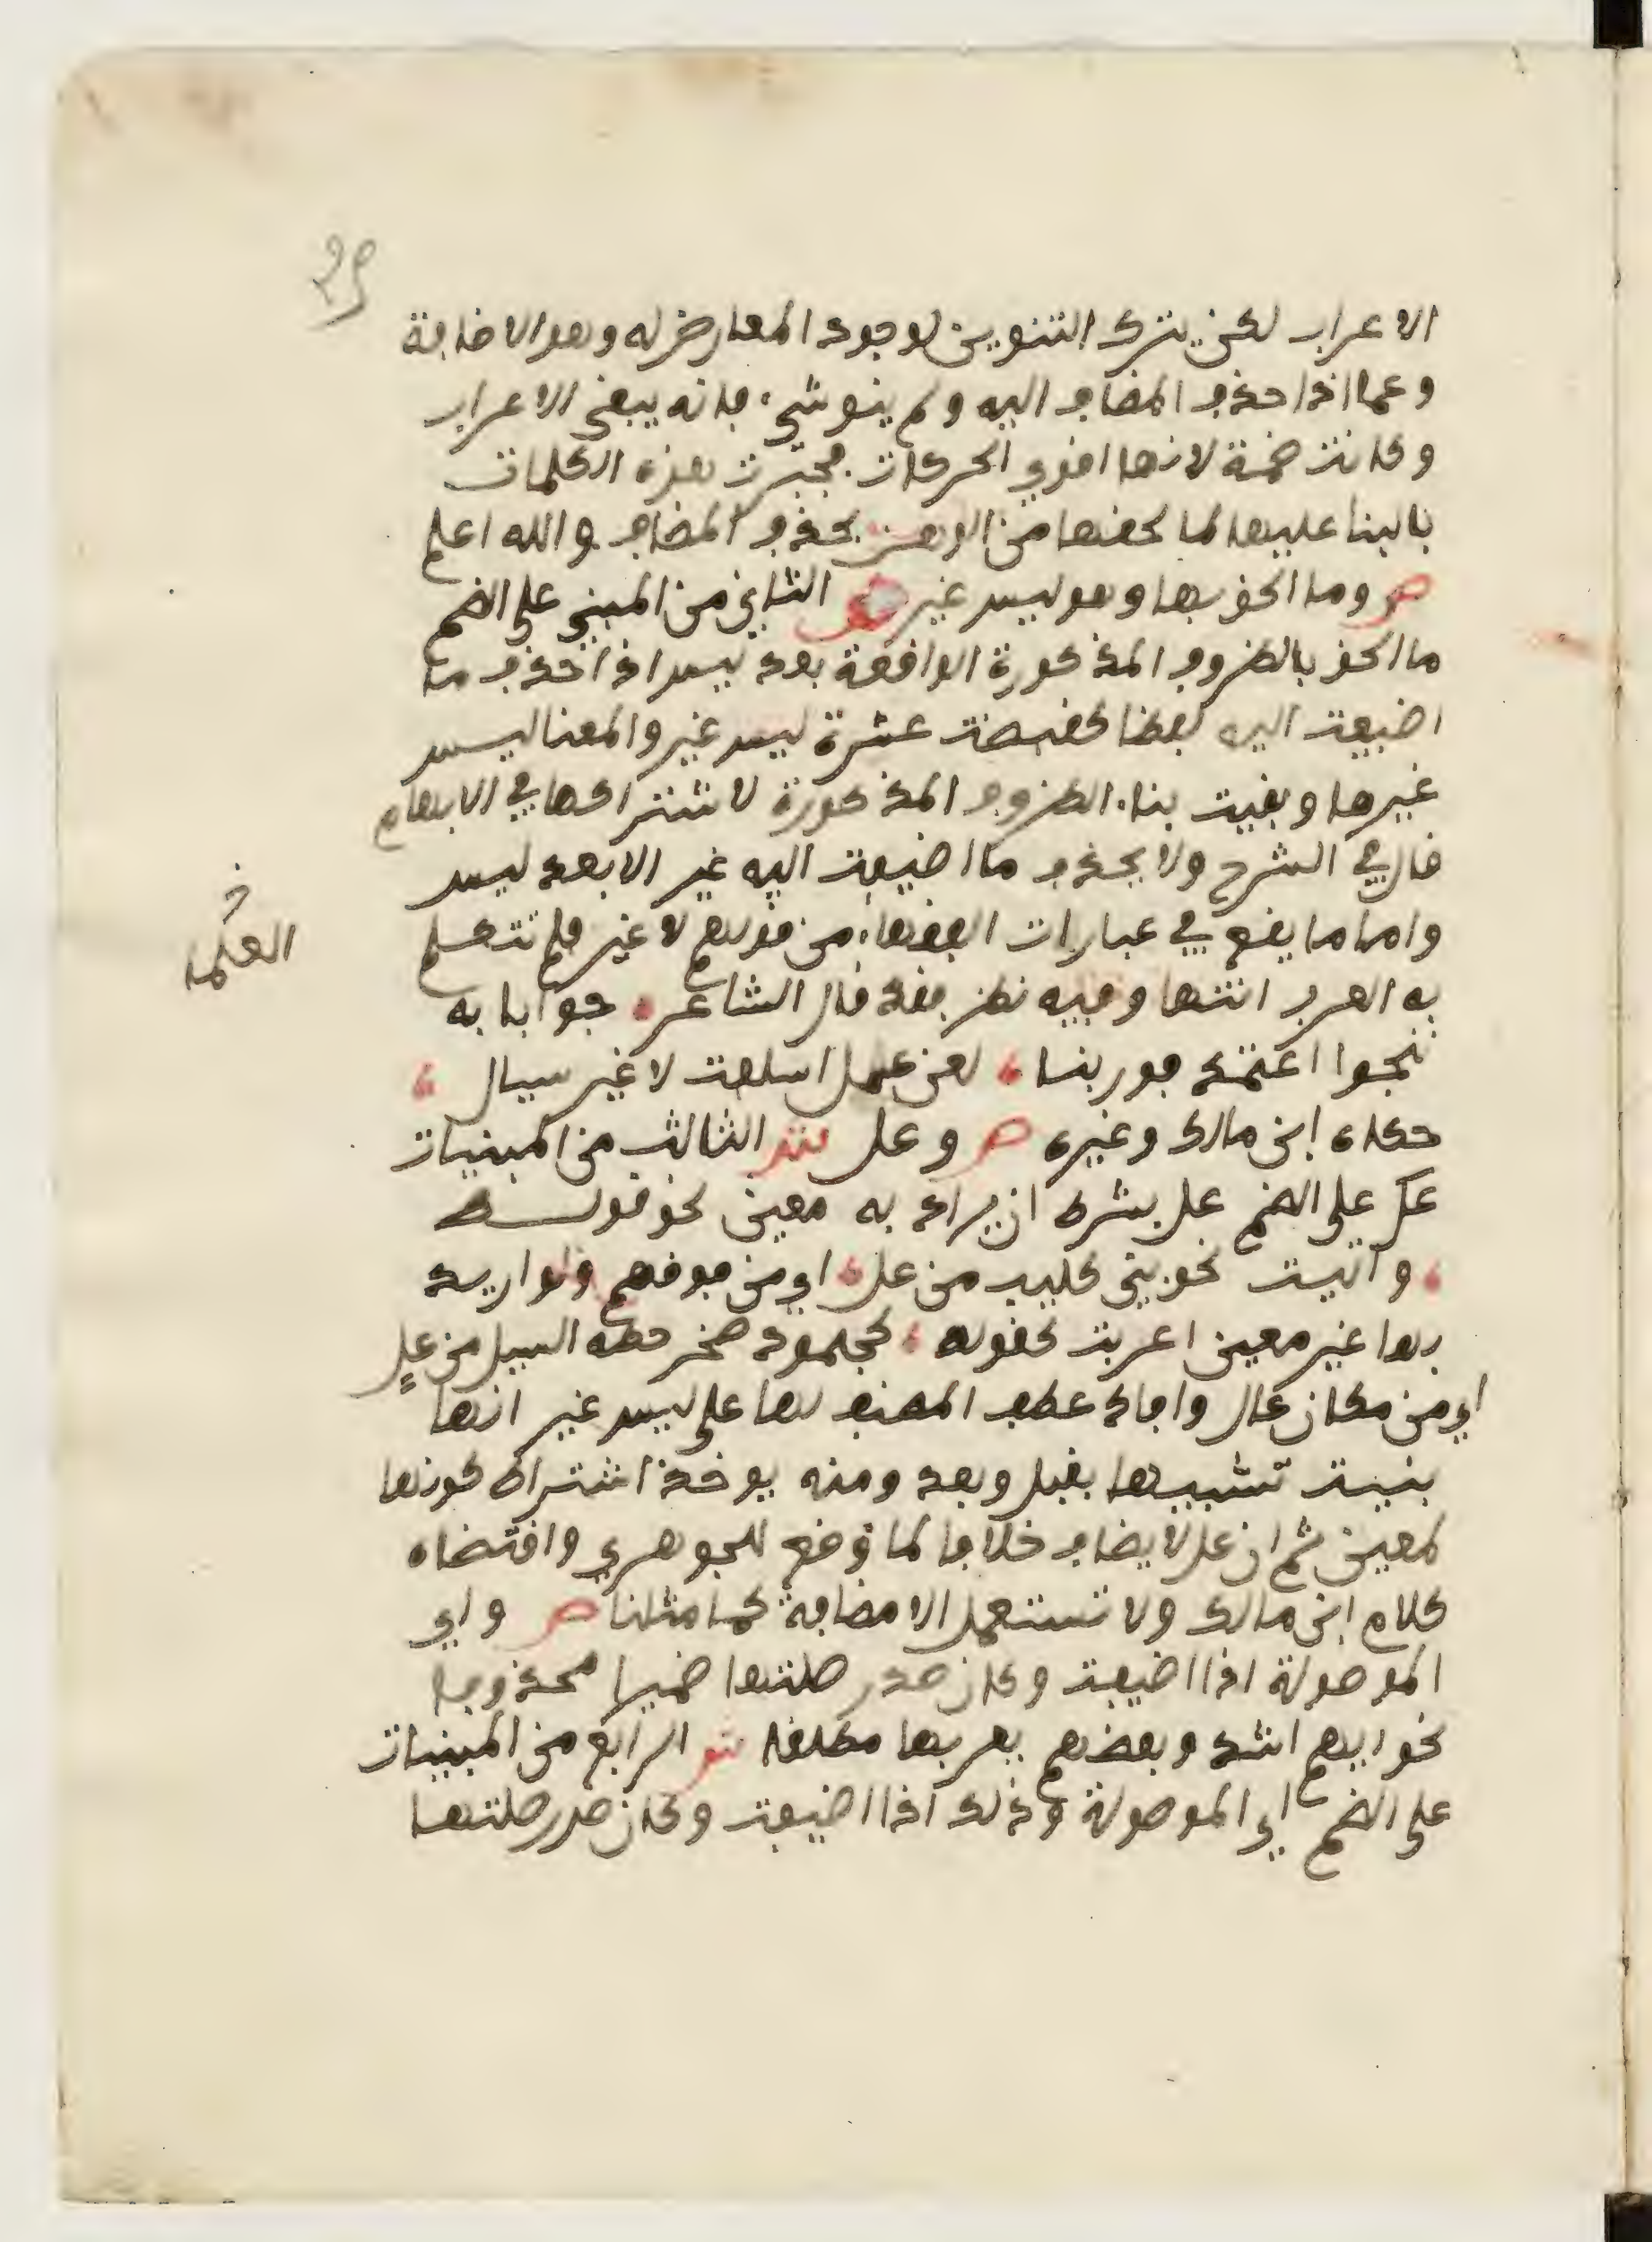 29
الاعراب لكن يترك التنوين لوجود المعارض له وهو الاضافة
وعما اذا حذف المضاف اليه ولم ينو شيء فانه يبقى الاعراب
وكانت ضمة لانها اقوى الحركات فجبرت هذه الكلمات
بالبنا عليها لما لحقها من الوهن بحذف المضاف والله اعلم
ص وما الحق بها وهو ليس غير ش الثاني من المبني على الضم
ما الحق بالظروف المذكورة الواقعة بعد ليس اذا حذف ما
اضيفت اليه لفظا كقبضت عشرة ليس غير والمعنا ليس
غيرها وبقيت بناء الظروف المذكورة لاشتراكها في الابهام
قال في الشرح ولا يحذف ما اضيفت اليه غير الا بعد ليس
واما ما يقع في عبارات الفقهاء من قولهم لا غير فلم تتكلم
العلما خ
به العرب انتها وفيه نظر فقد قال الشاعر جوابا به
تنجوا اعتمد فوربنا لعن عمل اسلفت لا غير تسال
حكاه ابن مالك وغيره ص وعل ش الثالث من المبنيات
عل على الضم عل بشرط ان يراد به معين نحو قولك
واتيت نحو بني كليب من عل اي من فوقهم ولو اريد
بها غير معين اعربت كقوله كجلمود صخر حطه السيل من عل
اي من مكان عال وافاد عطف المصنف لها على ليس غير انها
بنيت تشبيها بقبل وبعد ومنه يوخذ اشتراط كونها
لمعين ثم ان عل لا يضاف خلافا لما وقع للجوهري واقتضاه
كلام ابن مالك ولا تستعمل الا مضافة كما مثلنا ص واي
الموصولة اذا اضيفت وكان صدر صلتها ضميرا محذوفا
نحو ايهم اشد وبعضهم يعربها مطلقا ش الرابع من المبنيات
على الضم اي الموصولة وذلك اذا اضيفت وكان صدر صلتها